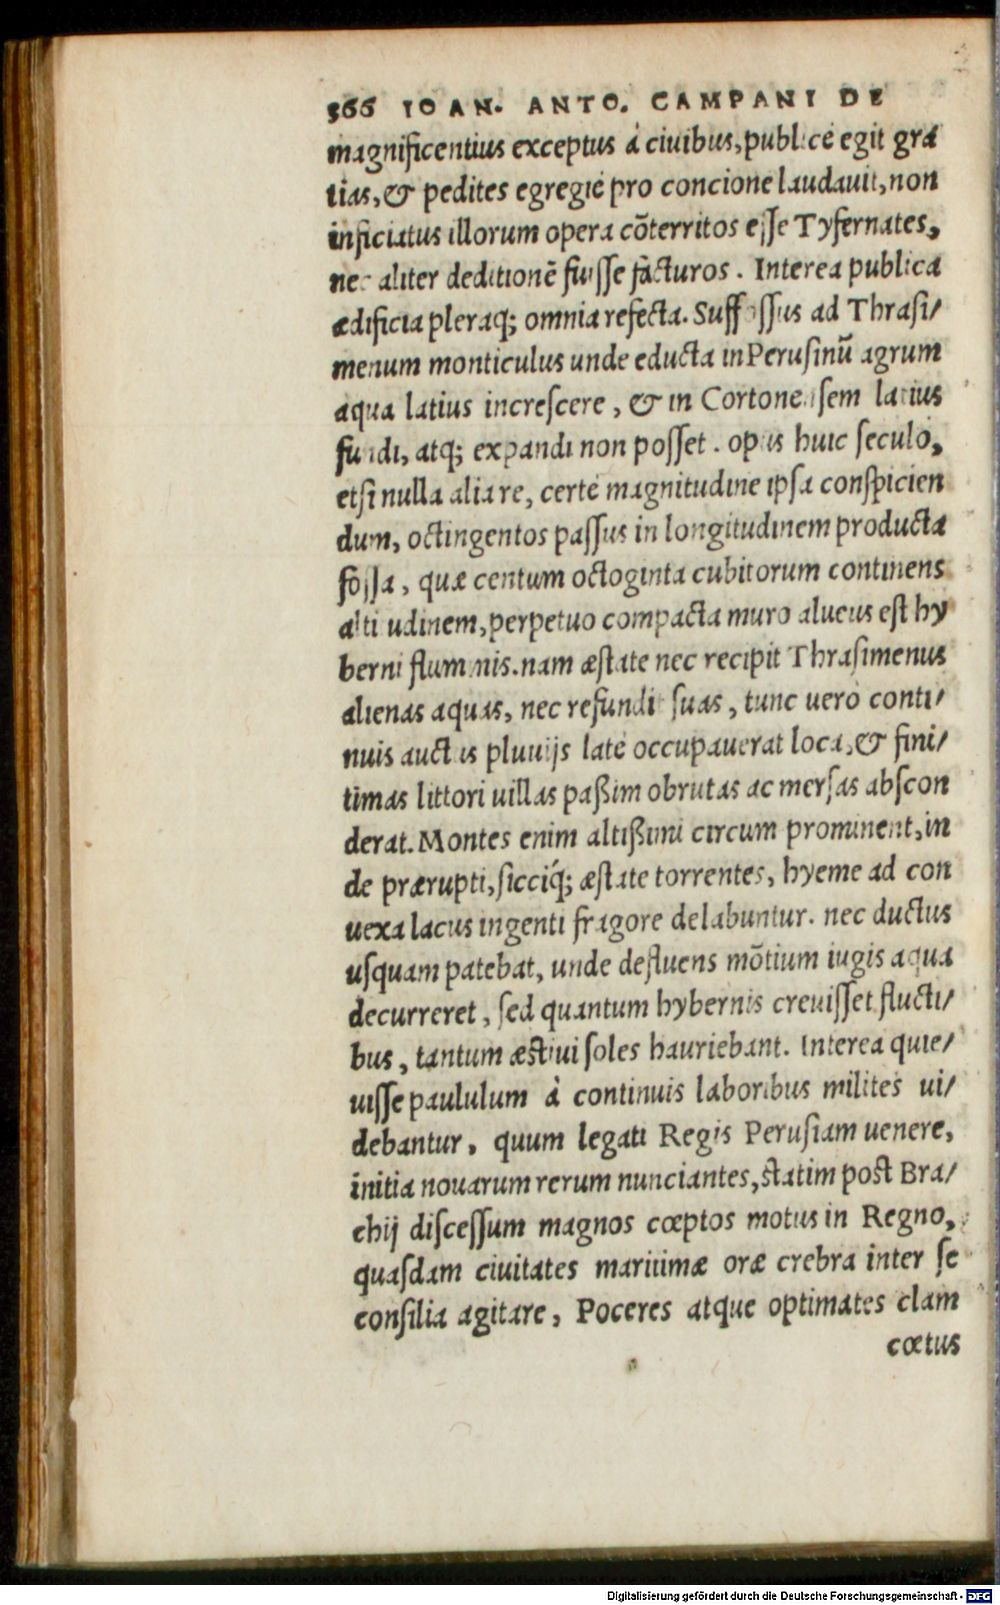 366 IOAN. ANTO. CAMPANI DE
magnificentius exceptus à ciuibus, publicè egit grá
tias, & pedites egregiè pro concione laudauit, non
inficiatus illorum opera cōterritos eſſe Tyfernates,
nec aliter deditionē fuiſſe facturos. Interea publica
ædificia pleraq; omnia refecta. Suffoſſus ad Thraſi/
menum monticulus unde educta in Peruſinũ agrum
aqua latius increſcere, & in Cortonenſem latius
fundi, atq; expandi non poſſet. opus huic ſeculo,
etſi nulla alia re, certè magnitudine ipſa conſpicien
dum, octingentos paſſus in longitudinem producta
foſſa, quæ centum octoginta cubitorum continens
altitudinem, perpetuo compacta muro alueus eſt hy
berni fluminis. nam æſtate nec recipit Thraſimenus
alienas aquas, nec refundit ſuas, tunc uerò conti/
nuis auctus pluuijs latè occupauerat loca, & fini/
timas littori uillas paßim obrutas ac merſas abſcon
derat. Montes enim altißimi circum prominent, in
de prærupti, ſicciq́; æſtate torrentes, hyeme ad con
uexa lacus ingenti fragore delabuntur. nec ductus
uſquam patebat, unde defluens mōtium iugis aqua
decurreret, ſed quantum hybernis creuiſſet flucti/
bus, tantum æſtiui ſoles hauriebant. Interea quie/
uiſſe paululum à continuis laboribus milites ui/
debantur, quum legati Regis Peruſiam uenere,
initia nouarum rerum nunciantes, ſtatim poſt Bra/
chij diſceſſum magnos cœptos motus in Regno,
quaſdam ciuitates maritimæ oræ crebra inter ſe
conſilia agitare, Poceres atque optimates clam
cœtus
Digitalisierung gefördert durch die Deutsche Forschungsgemeinschaft - DFG